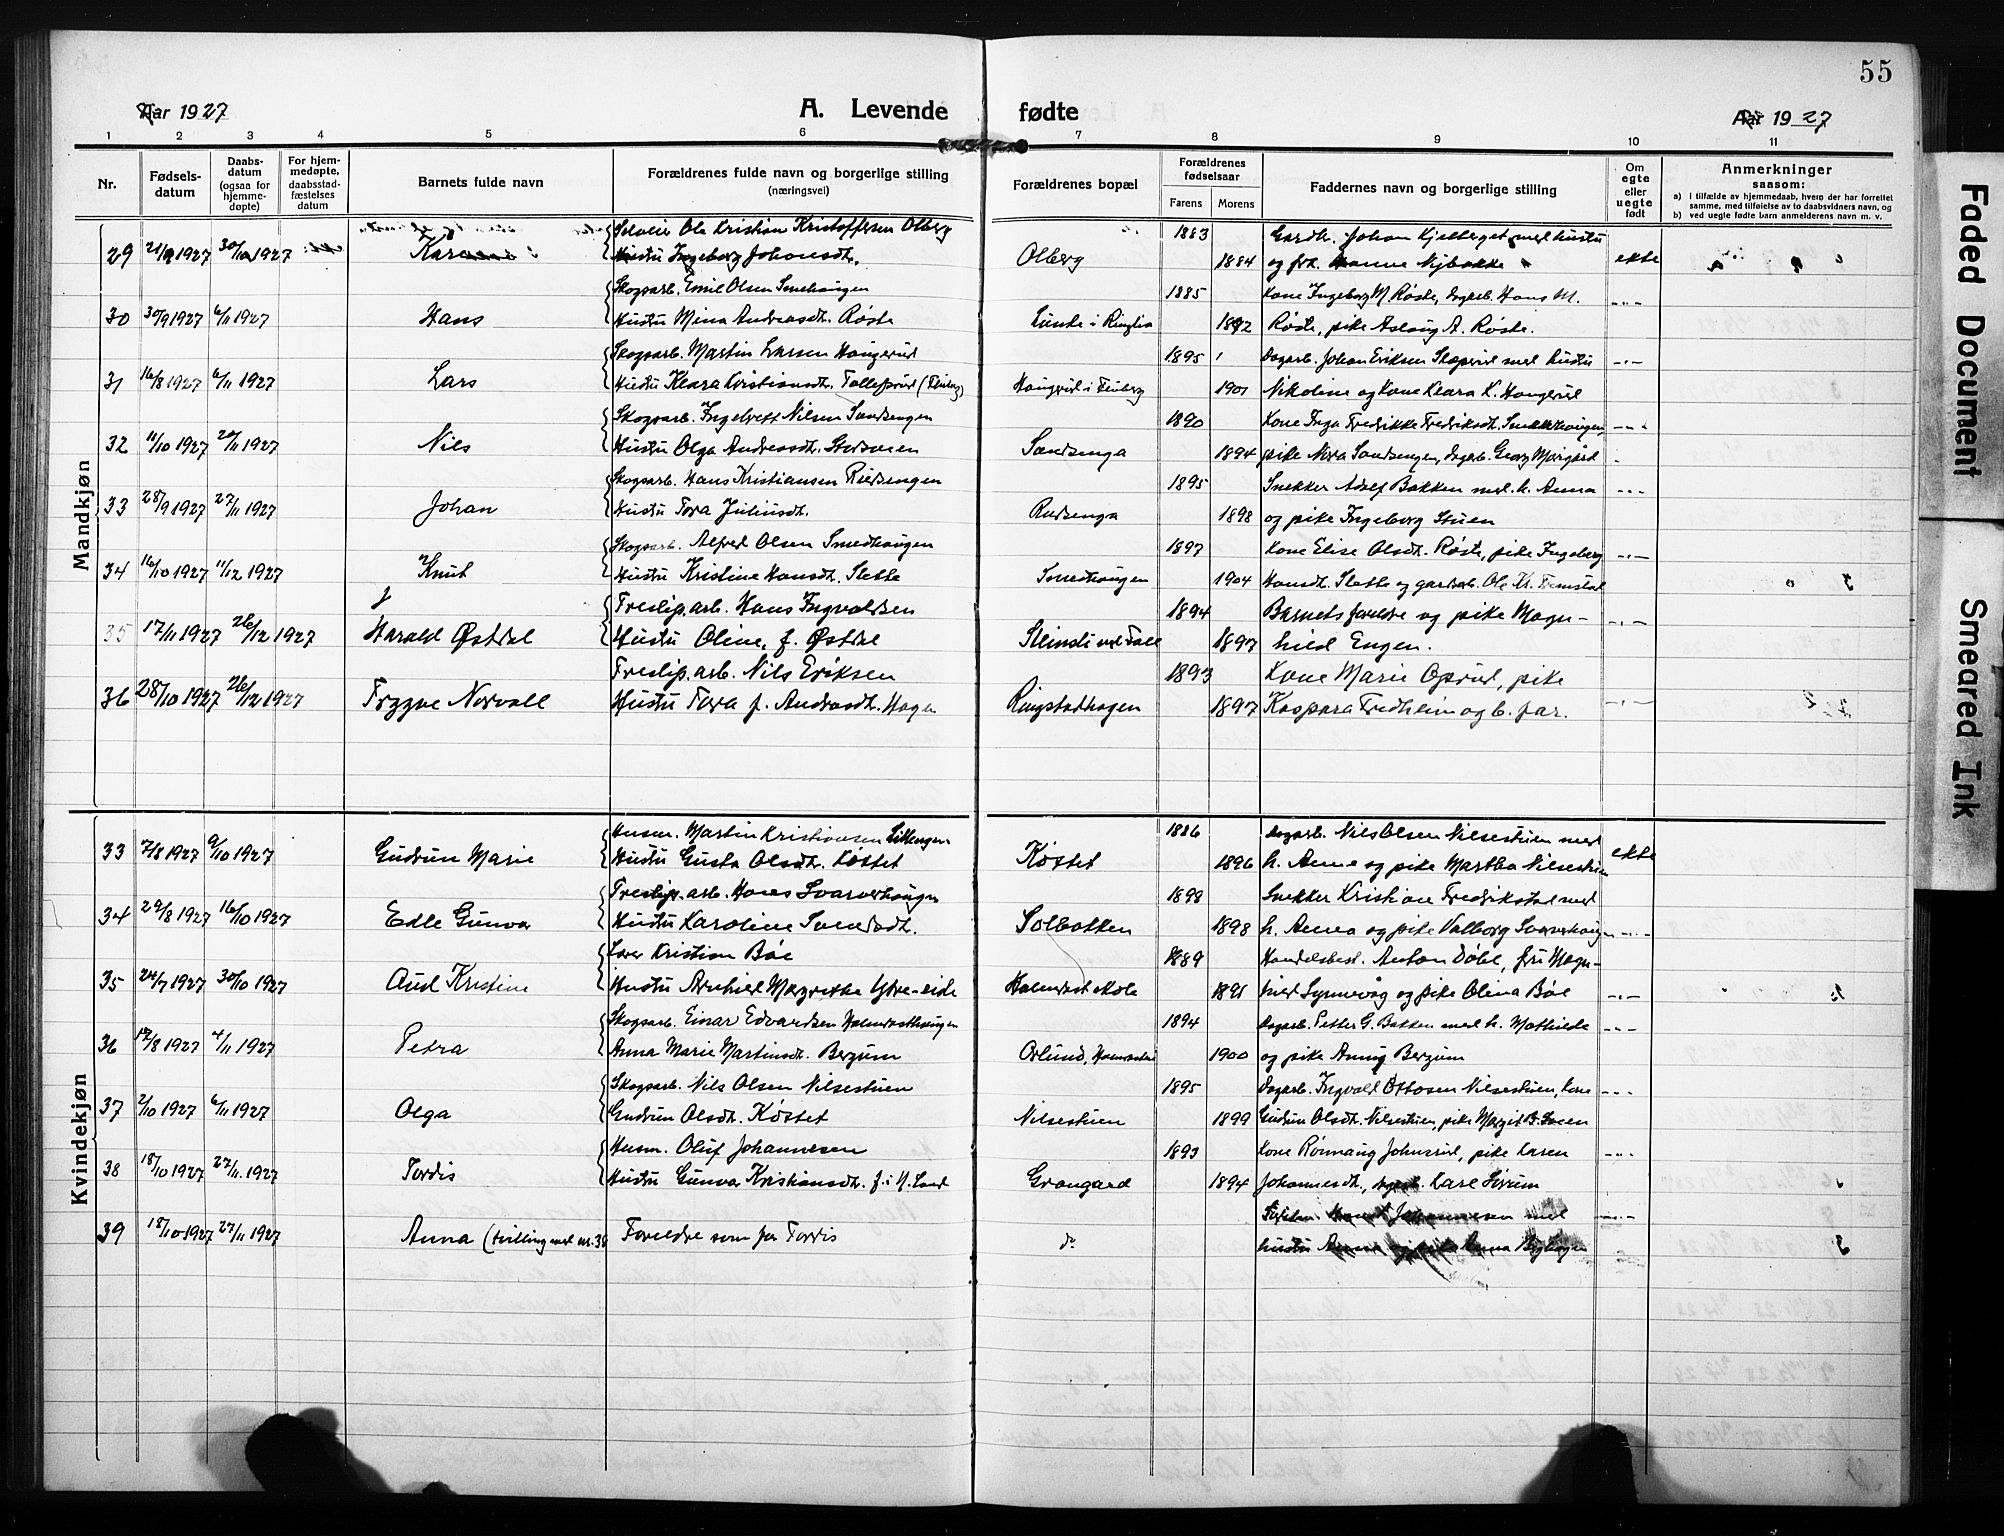 55
Aar 1927
A. Levende fødte
Aar 1927
1 2 3 4 5 6 7 8 9 10 11
Nr.
Fødsels-
datum
Daabs-
datum
(ogsaa for
hjemme-
døpte)
For hjem-
medøpte,
daabsstad-
fæstelses
datum
Barnets fulde navn
Forældrenes fulde navn og borgerlige stilling
(næringsvei)
Forældrenes bopæl
Forældrenes
fødselsaar
Farens Morens
Faddernes navn og borgerlige stilling
Om
egte
eller
uegte
født
Anmerkninger
saasom:
a) i tilfælde av hjemmedaab, hvem der har forrettet
samme, med tilføielse av to daabsvidners navn, og
b) ved uegte fødte barn anmelderens navn m. v.
Mandkjøn
Selveier Ole Kristian Kristoffersen Olberg 1883 Gardbr. Johan Kjelberget med hustru
29 1927 1927 Hustru Ingeborg Johansdt. Olberg 1884 og frk. Nybakke ekte
Skogsarb. Emil Olsen Smehaugen 1885 Kone Ingeborg M. Røste, dagarb. Hans M.
30 30/9 1927 6/11 1927 Hans Hustru Mina Andreasdt. Røste Lunde i Ringlia 1892 Røste, pike Aslaug A. Røste. -"-
Skogsarb. Martin Larsen Haugerud 1895 Dagarb. Johan Eriksen Skaprud med hustru -"-
31 16/8 1927 6/11 1927 Lars Hustru Klara Kristiansdt. Tollefsrud (Fluberg) Haugrud i Fluberg 1901 Nikoline og kone Klara K. Haugerud
Skogsarb. Ingebrett Nilsen Sandsengen 1890 Kone Inga Fredrikke Fredriksdt. Smedhaugen, -"-
32 11/10 1927 1927 Nils Hustru Olga Andreasdt. Sandsenga 1894 pike Nora Sandsengen, dagarb. Georg Morgård
Skogsarb. Hans Kristiansen Rudsengen 1895 Snekker Adolf Bakken med h. Anna -"-
33 28/9 1927 27/11 1927 Johan Hustru Tora Juliusdt. Rudsenga 1898 og pike Ingeborg Stuen
Skogsarb. Alfred Olsen Smedhaugen 1897 Kone Elise Olsdt. Røste, pike Ingeborg -"-
34 16/10 1927 11/12 1927 Knut Hustru Kristine Hansdt. Slette Smedhaugen 1904 Hansdt. Slette og gardarb. Ole Kr. Femstad
Treslip.arb. Hans Ingvaldsen 1894 Barnets foreldre og pike Magn-
35 17/11 1927 26/12 1927 Harald Østdal Hustru Oline, f. Østdal Steinde ved Fall 1897 hild Engen. -"-
Treslip.arb. Nils Eriksen 1893 Kone Marie Oprud, pike
36 28/10 1927 26/12 1927 Trygve Norvall Hustru Tora f. Andreasdt. Hagen Ringstadhagen 1897 Kaspara Fredheim og b. far. -"-
Kvindekjøn
Husm. Martin Kristiansen 1886 Dagarb. Nils Olsen Nilsestuen med
33 7/8 1927 9/10 1927 Gudrun Marie Hustru Gusta Olsdt. Køstet Køstet 1896 h. Anne og pike Martha Nilsestuen ekte
Treslip.arb. Hans Svarverhaugen 1898 Snekker Kristian Fredrikstad med
34 29/8 1927 16/10 1927 Edle Gunvor Hustru Karoline Svendsdt. Solbakken 1898 h. Anna og pike Valborg Svarverhaugen -"-
Lærer Kristian Bøe 1889 Handelsbest. Anton Døhl, fru Magn-
35 24/7 1927 30/10 1927 Aud Kristine Hustru Arnhild Margrethe Ytre-eide Halmrast skole 1891 hild Synnevåg og pike Olina Bøe -"-
Skogsarb. Einar Edvardsen Halmrasthaugen 1894 Dagarb. Petter G. Bakken med h. Mathilde -"-
36 17/8 1927 4/11 1927 Petra Anna Marie Martinsdt. Bergum Orlund, Halmrast 1900 og pike Anny Bergum
Skogsarb. Nils Olsen Nilsestuen 1895 Dagarb. Ingvald Ottosen Nilsestuen, kone -"-
37 2/10 1927 6/11 1927 Olga Gudrun Olsdt. Køstet Nilsestuen 1899 Gudrun Olsdt. Nilsestuen, pike Margit B. Loeen
Husm. Oluf Johannesen 1893 Kone Rønnaug Johnsrud, pike Karen -"-
38 18/10 1927 27/11 1927 Tordis Hustru Gunvor Kristiansdt. f. i N. Land Grangard 1894 Johannesdt., Kare Sørum
39 18/10 1927 27/11 1927 Anna (tvilling med nr. 38) Foreldre som for Tordis d. med -"-
hustru Anna Anna Berghagen
Faded Document
Smeared Ink